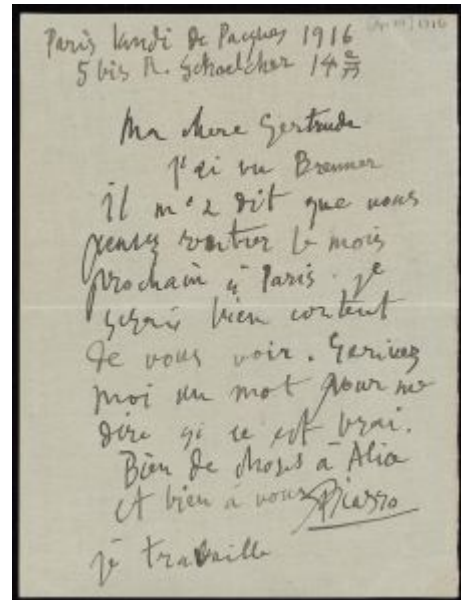 Paris lundi de Pacques 1916
5 bis R. Schoelcher 14e
Ma chere Gertrude
j'ai vu Brenner
il m'a dit que vous
pensez rentrer le mois
prochain à Paris. je
serais bien content
de vous voir. Ecrivez
moi un mot pour me
dire si ce est vrai.
Bien de choses à Alice
et bien à vous Picasso
je travaille